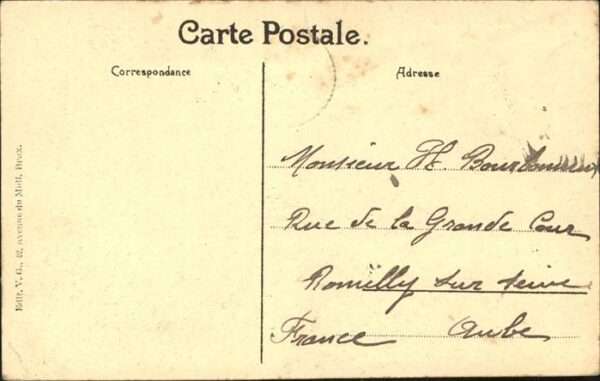 Carte Postale.
Correspondance
Adresse
Monsieur H.
Rue de la Grande Cour
Romilly sur seine
France Aube
Edit. V. G., 12, avenue du Midi, Brux.